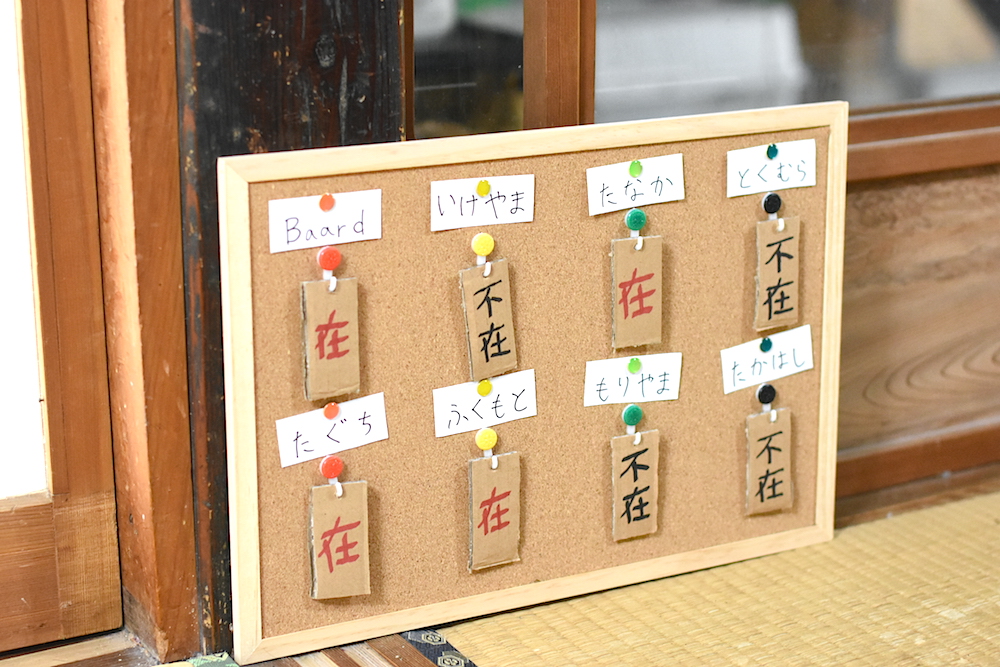 Baard
在
いけやま
不在
たなか
在
とくむら
不在
たぐち
在
ふくもと
在
もりやま
不在
たかはし
不在